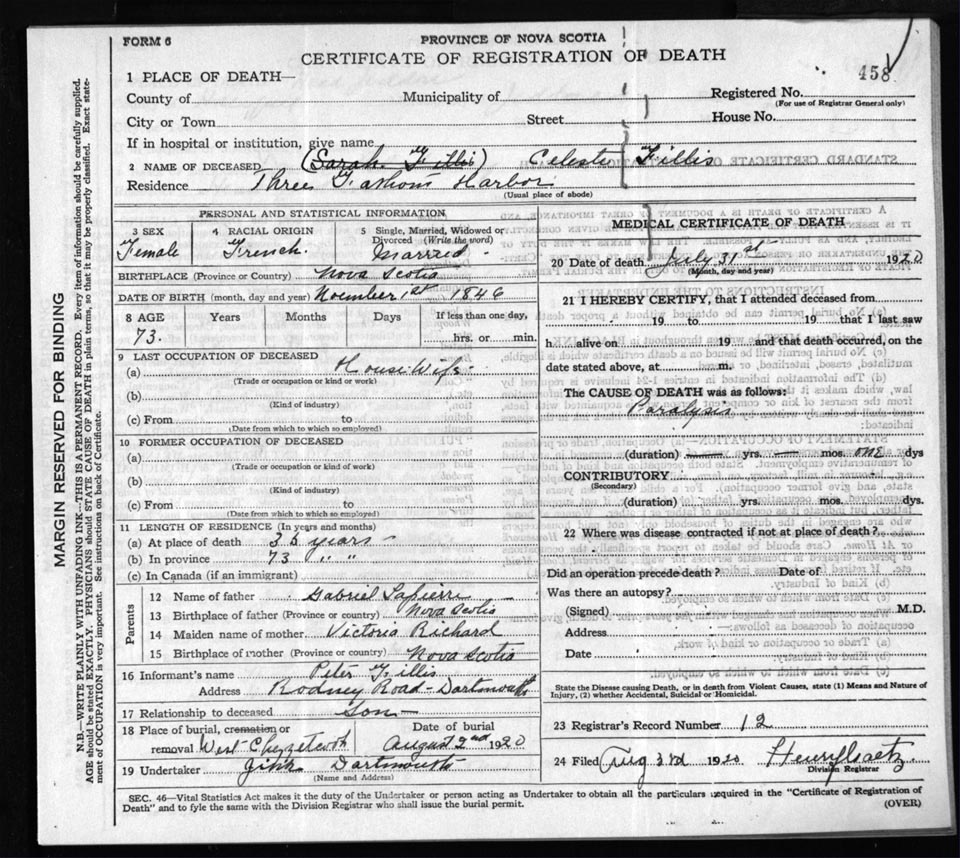 FORM 6
PROVINCE OF NOVA SCOTIA
CERTIFICATE OF REGISTRATION OF DEATH
458
1 PLACE OF DEATH—
County of Municipality of Registered No.
(For use of Registrar General only)
City or Town Street House No.
If in hospital or institution, give name
2 NAME OF DECEASED (Sarah Fillis) Celeste Fillis
Residence Three Fathom Harbor
(Usual place of abode)
PERSONAL AND STATISTICAL INFORMATION
3 SEX 4 RACIAL ORIGIN 5 Single, Married, Widowed or Divorced (Write the word)
Female French. Married
BIRTHPLACE (Province or Country) Nova Scotia
DATE OF BIRTH (month, day and year) November 1st 1846
8 AGE Years Months Days If less than one day,
73. hrs. or min.
9 LAST OCCUPATION OF DECEASED
(a) House Wife
(Trade or occupation or kind or work)
(b)
(Kind of industry)
(c) From to
(Date from which to which so employed)
10 FORMER OCCUPATION OF DECEASED
(a)
(Trade or occupation or kind of work)
(b)
(Kind of industry)
(c) From to
(Date from which to which so employed)
11 LENGTH OF RESIDENCE (In years and months)
(a) At place of death years
(b) In province 73 " "
(c) In Canada (if an immigrant)
Parents
12 Name of father Gabriel Lapierre
13 Birthplace of father (Province or country) Nova Scotia
14 Maiden name of mother Victoria Richard
15 Birthplace of mother (Province or country) Nova Scotia
16 Informant's name Peter Fillis
Address Rodney Road - Dartmouth
17 Relationship to deceased Son
18 Place of burial, cremation or removal West Chezzetcook
Date of burial August 2nd 1920
19 Undertaker Dartmouth
(Name and Address)
MEDICAL CERTIFICATE OF DEATH
20 Date of death July 31st 1920
(Month, day and year)
21 I HEREBY CERTIFY, that I attended deceased from
19 to 19 that I last saw
h alive on 19 and that death occurred, on the
date stated above, at m.
The CAUSE OF DEATH was as follows:
Paralysis
(duration) yrs. mos. ONE dys
CONTRIBUTORY
(Secondary)
(duration) yrs. mos. dys.
22 Where was disease contracted if not at place of death?
Did an operation precede death? Date of
Was there an autopsy?
(Signed) M.D.
Address
Date
State the Disease causing Death, or in death from Violent Causes, state (1) Means and Nature of
Injury, (2) whether Accidental, Suicidal or Homicidal.
23 Registrar's Record Number 12
24 Filed Aug 3rd 1920
Division Registrar
SEC. 46—Vital Statistics Act makes it the duty of the Undertaker or person acting as Undertaker to obtain all the particulars required in the "Certificate of Registration of
Death" and to fyle the same with the Division Registrar who shall issue the burial permit.
(OVER)
MARGIN RESERVED FOR BINDING
N.B.—WRITE PLAINLY WITH UNFADING INK—THIS IS A PERMANENT RECORD. Every item of information should be carefully supplied.
AGE should be stated EXACTLY. PHYSICIANS should STATE CAUSE OF DEATH in plain terms, so that it may be properly classified. Exact state-
ment of OCCUPATION is very important. See instructions on back of Certificate.